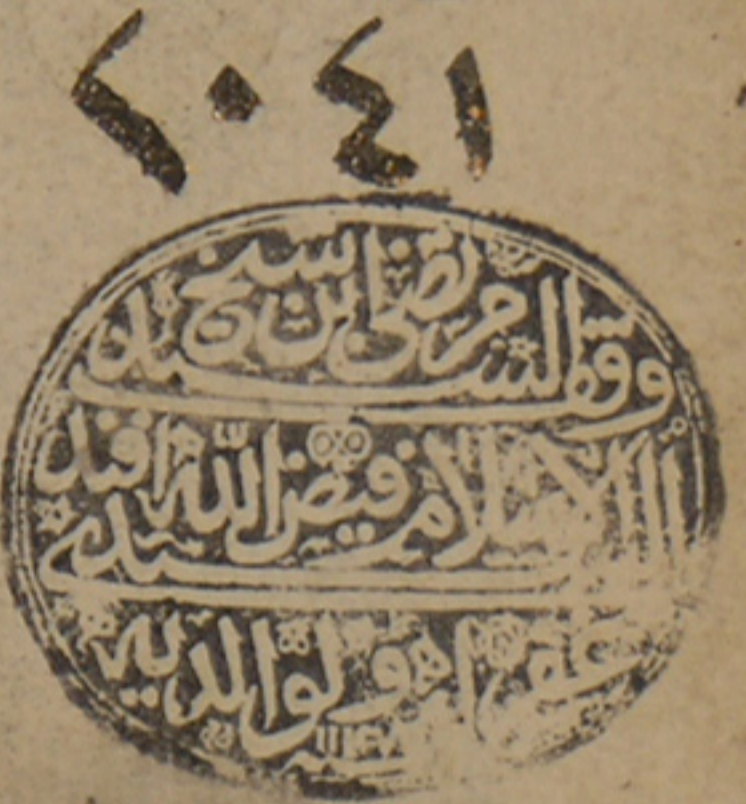 ٢٠٤١
وقف السيد مرتضى ابن شيخ
الاسلام فيض الله افندى
عفى ولوالديه
سنه